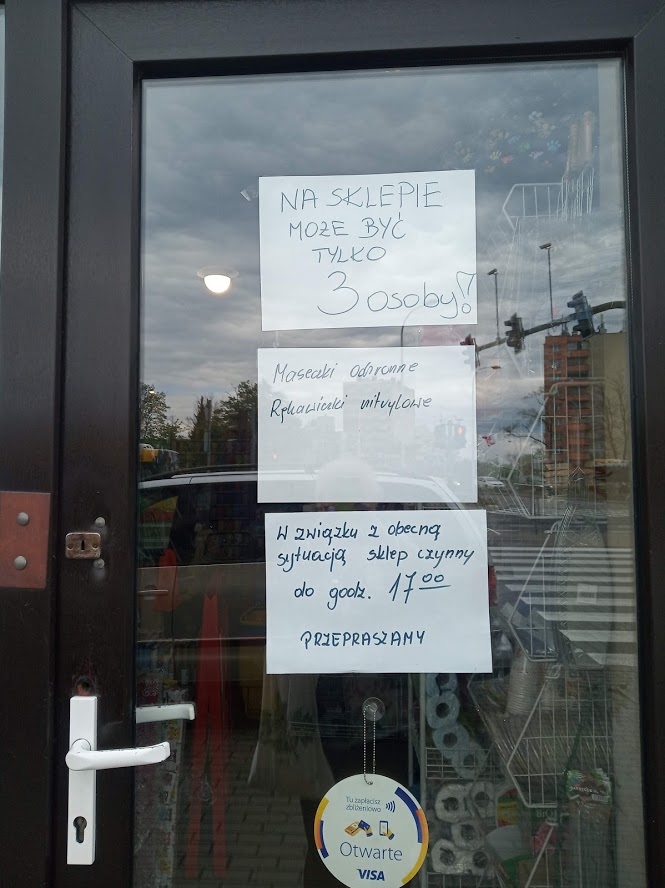 NA SKLEPIE
MOŻE BYĆ
TYLKO
3 osoby!
Maseczki ochronne
Rękawiczki nitrylowe
W związku z obecną
sytuacją sklep czynny
do godz. 17⁰⁰
PRZEPRASZAMY
Tu zapłacisz
zbliżeniowo
Otwarte
VISA